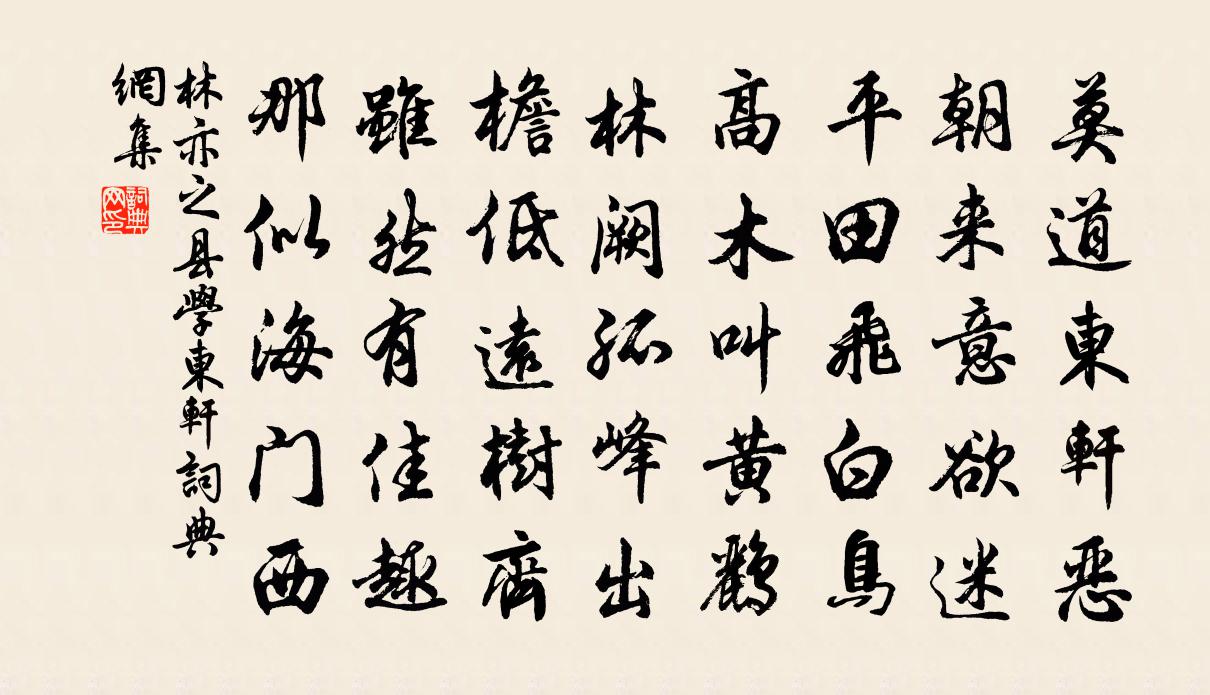 莫道東軒恶
朝来意欲迷
平田飛白鳥
高木叫黄鸝
林闕孤峰出
檐低遠樹齊
雖然有佳趣
那似海门西
林亦之县學東軒詞典
網集
詞典
网印